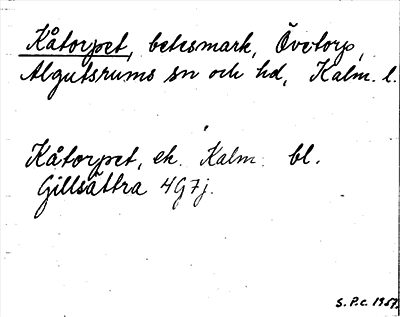 Kåtorpet, betesmark, Övetorp,
Algutsrums sn och hd, Kalm. l.
Kåtorpet, ek. Kalm. bl.
Gillsättra 4G7j.
S.P.c. 1957.